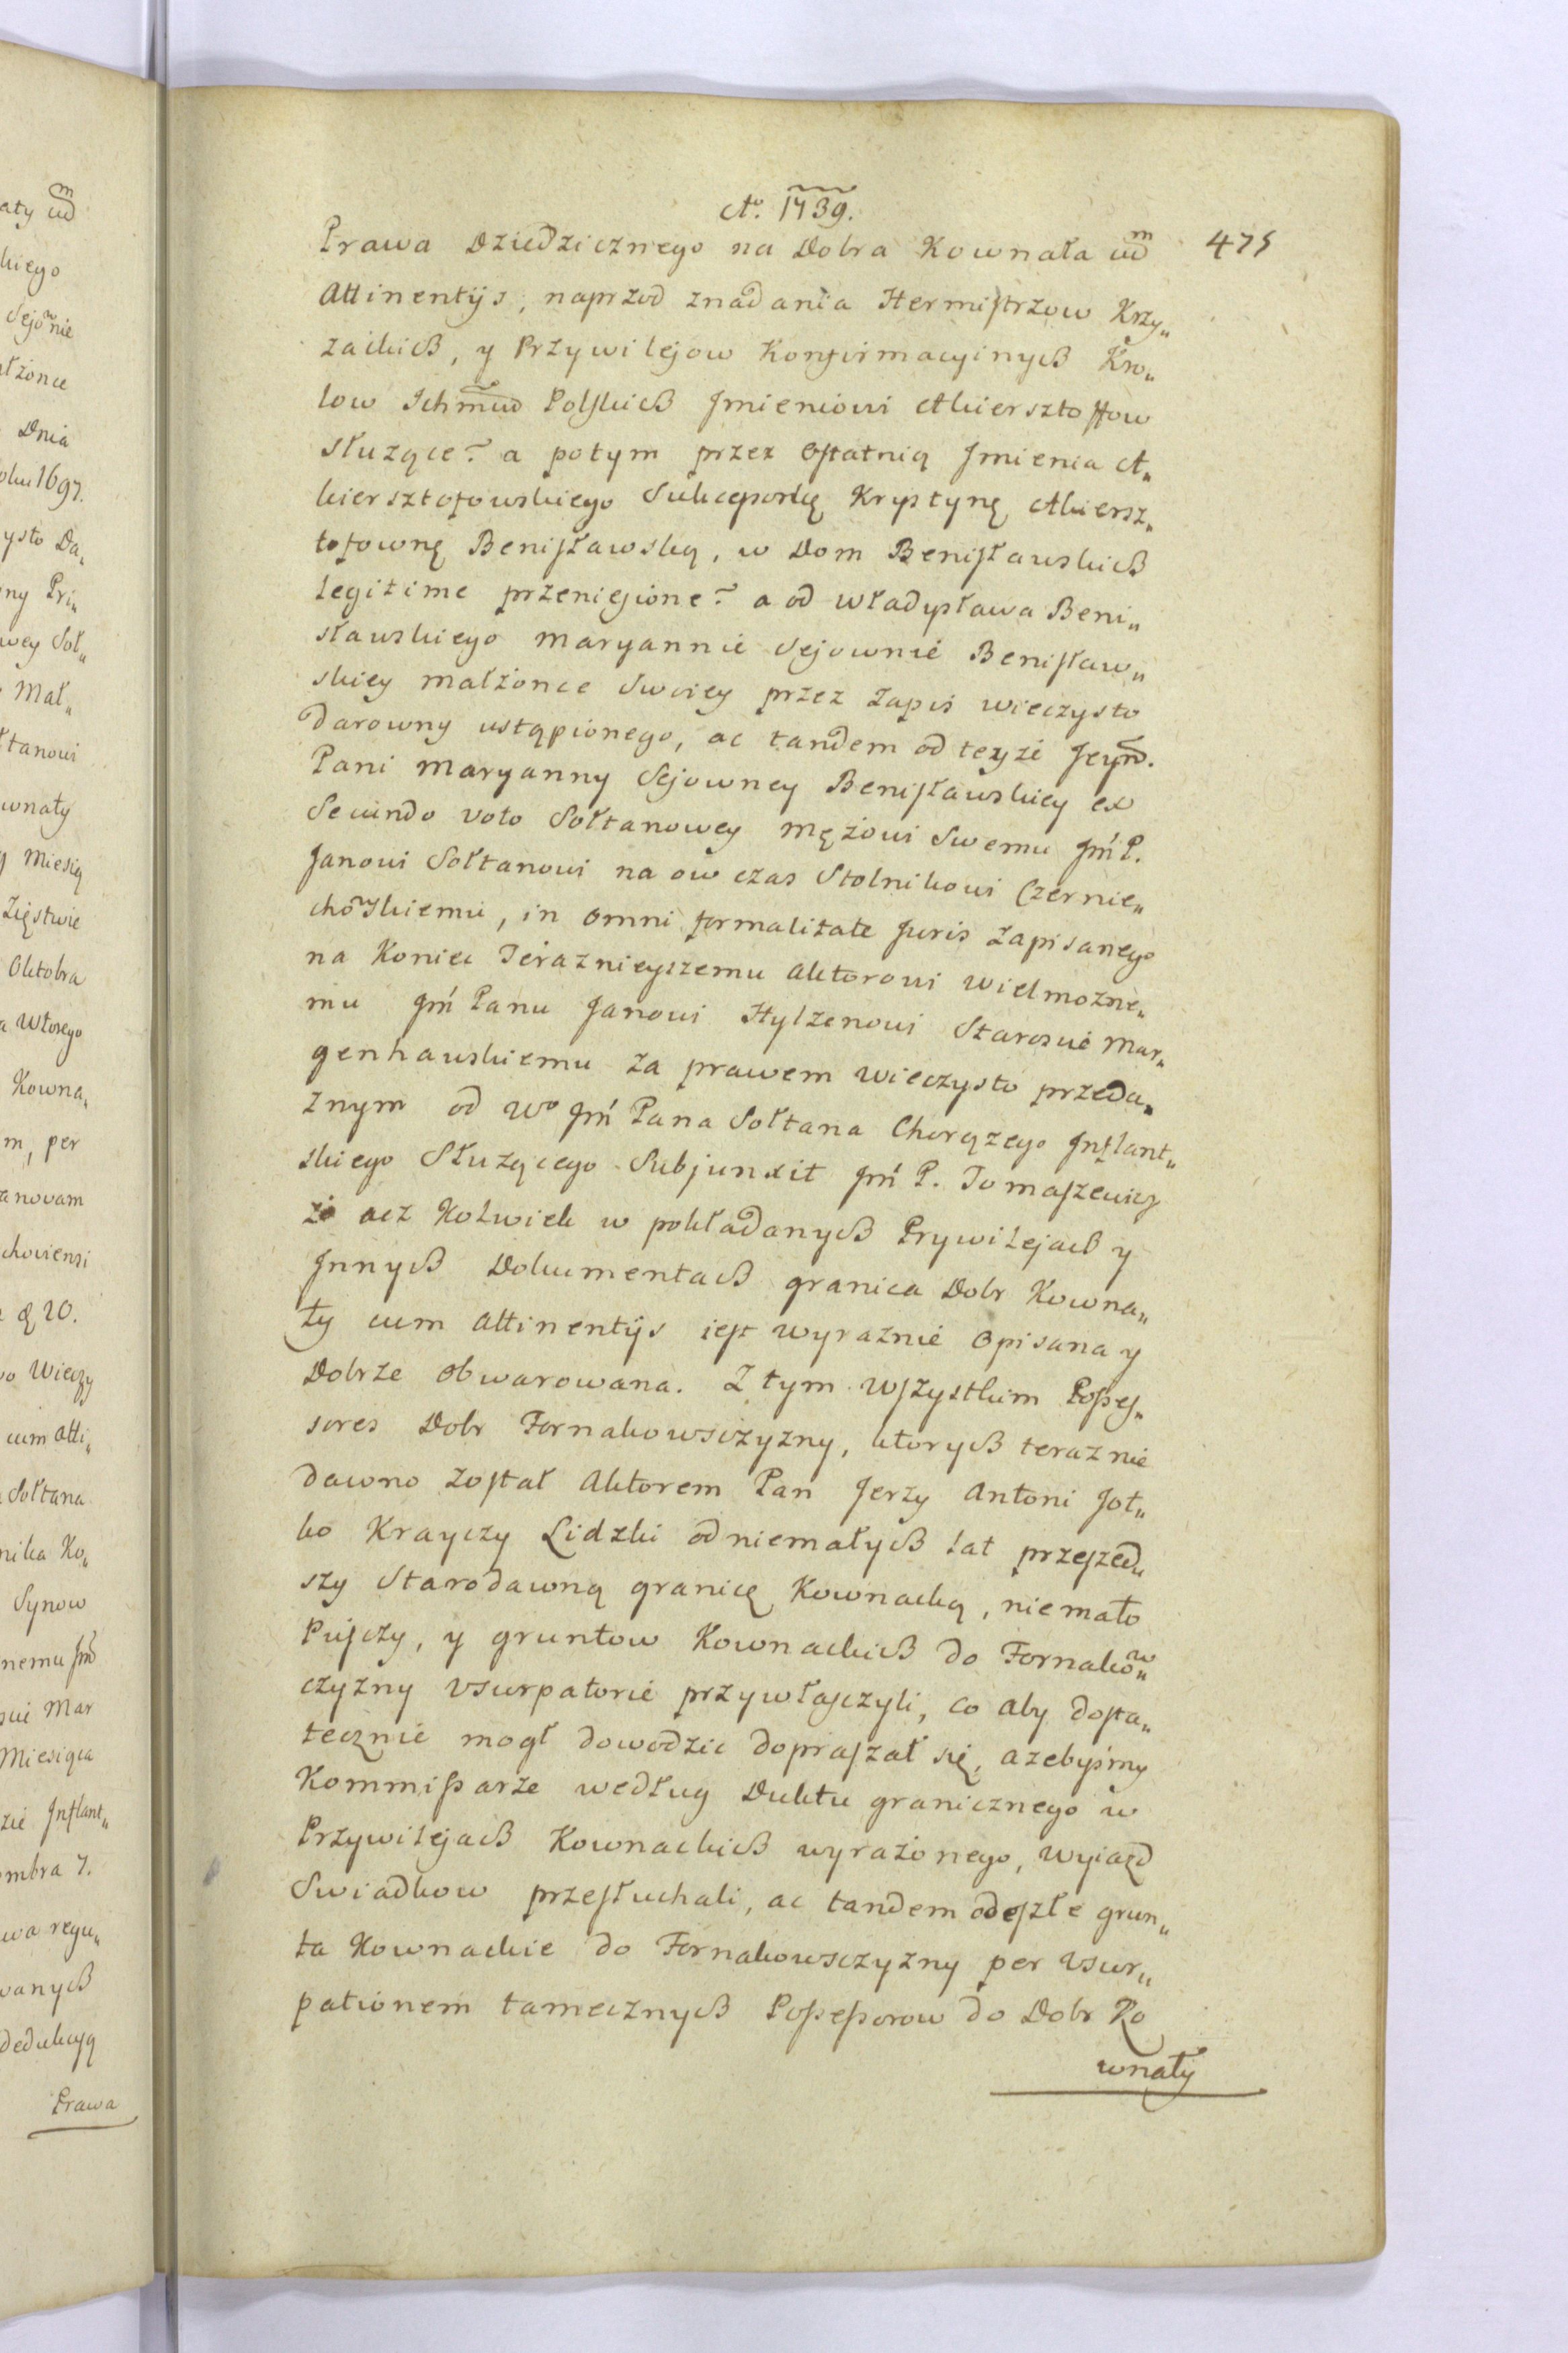 Aº. 1739.
475
Prawa Dziedzicznego na Dobra Kownata cum
Attinentijs, naprzod z nadania Hermistrzow Krzy„
zackich, y Przywilejow Konfirmacyinych Kro„
low Ichmciow Polskich Jmieniowi Akiersztoffow
służące~ a potym przez ostatnią Jmienia A„
kiersztofowskiego Sukcessorkę Krystynę Akiersz„
tofownę Benisławską, w Dom Benisławskich
legitime przeniesione~ a od Władysława Beni„
sławskiego Maryannie Sejownie Benisław„
skiey małżonce Swoiey przez Zapis wieczysto
darowny ustąpionego, ac tandem od teyże Jeymci.
Pani Maryanny Sejowney Benisławskiey ex
Secundo voto Sołtanowey Mężowi Swemu Jm P.
Janowi Sołtanowi na ow czas Stolnikowi Czernie„
chowskiemu, in omni formalitate Juris Zapisanego
na Koniec Teraznieyszemu Aktorowi Wielmożne„
mu Jm Panu Janowi Hylzenowi Staroscie Mar„
genhauskiemu za prawem Wieczysto przeda„
żnym od Wº Jm Pana Sołtana Chorążego Inflant„
skiego Służącego. Subjunxit Jm P. Tomaszewicz
że acz Kolwiek w pokładanych Prywilejach y
Innych Dokumentach granica Dobr Kowna„
ty cum Attinentijs iest wyraznie opisana y
Dobrze obwarowana. Z tym wszystkim Posses„
sores Dobr Fornakowsczyzny, ktorych teraz nie
dawno został Aktorem Pan Jerzy Antoni Jot„
ko Krayczy Lidzki od niemałych lat przeszed„
szy Starodawną granicę Kownacką, niemało
Puszczy, y gruntow Kownackich do Fornakow„
czyzny Usurpatorie przywłaszczyli, co aby dosta„
tecznie mogł dowodzic dopraszał się, azebysmy
Kommissarze według Duktu granicznego w
Przywilejach Kownackich wyrażonego, Wyiazd
Swiadkow przesłuchali, ac tandem odeszłe grun„
ta Kownackie do Fornakowsczyzny per Usur„
pationem tamecznych Possessorow do Dobr Ko
wnaty